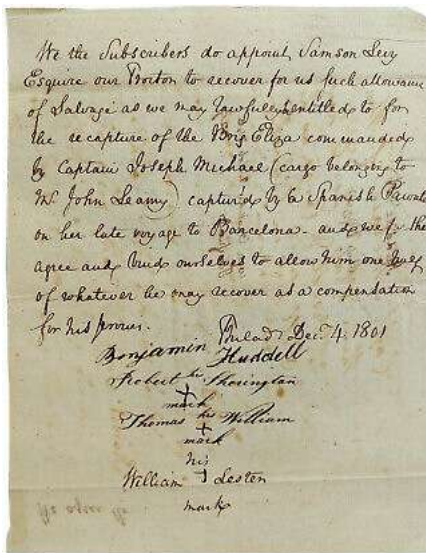 We the Subscribers do appoint Samson Levy
Esquire our Proctor to recover for us such allowance
of Salvage as we may lawfully entitled to for
the recapture of the Brig Eliza commanded
by Captain Joseph Michael (cargo belonging to
Mr. John Leamy) captur'd by a Spanish Privat
on her late voyage to Barcelona - and we
agree and bind ourselves to allow him one half
of whatever he may recover as a compensation
for his
Philad Dec. 4. 1801
Benjamin Huddell
Robert his Shorington
mark
Thomas his William
mark
his
William Lesten
mark